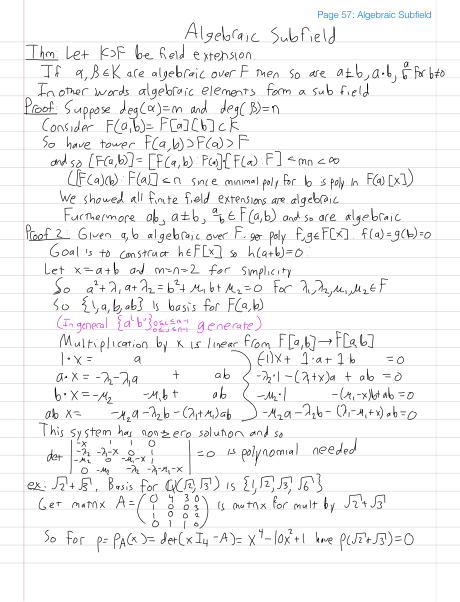 Page 57: Algebraic Subfield
Algebraic Subfield
Thm: Let K⊃F be field extension
If α, β∈K are algebraic over F then so are a±b, a·b, a/b for b≠0
In other words algebraic elements form a sub field
Proof: Suppose deg(α)=m and deg(β)=n
Consider F(a,b)= F[a][b]⊂K
So have tower F(a,b)⊃F(a)⊃F
and so [F(a,b)]=[F(a,b):F(a)][F(a):F]≤mn<∞
([F(a)(b):F(a)]≤n since minimal poly for b is poly in F(a)[x])
We showed all finite field extensions are algebraic
Furthermore ab, a±b, a/b∈F(a,b) and so are algebraic
Proof 2: Given a,b algebraic over F. get poly f,g∈F[x]. f(a)=g(b)=0
Goal is to construct h∈F[x] so h(a+b)=0
Let x=a+b and m=n=2 for simplicity
So a²+λ₁a+λ₂=b²+μ₁b+μ₂=0 for λ₁,λ₂,μ₁,μ₂∈F
So {1,a,b,ab} is basis for F(a,b)
(In general {aⁱbʲ} 0≤i≤m-1 0≤j≤n-1 generate)
Multiplication by x is linear from F[a,b]→F[a,b]
1·x= a (-1)x + 1·a+1·b =0
a·x=-λ₂-λ₁a + ab -λ₂·1-(λ₁+x)a + ab =0
b·x=-μ₂ -μ₁b+ ab -μ₂·1 -(μ₁-x)b+ab=0
ab x= -μ₂a-λ₂b-(λ₁+μ₁)ab -μ₂a-λ₂b-(λ₁-μ₁+x)ab=0
This system has nonzero solution and so
det | -x 1 1 0 | -λ₂ -λ₁-x 0 1 | -μ₂ 0 -μ₁-x 1 | 0 -μ₂ -λ₂ -λ₁-μ₁-x | =0 is polynomial needed
ex: √2+√3. Basis for Q(√2,√3) is {1,√2,√3,√6}
Get matrix A=(0 2 3 0 / 1 0 0 3 / 1 0 0 2 / 0 1 1 0) is matrix for mult by √2+√3
So for p=p_A(x)=det(xI₄-A)=x⁴-10x²+1 have p(√2+√3)=0